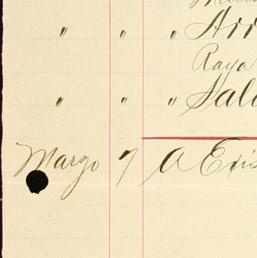 " " " Arr
Raya
" " " Sal
Marzo 7 A Exis